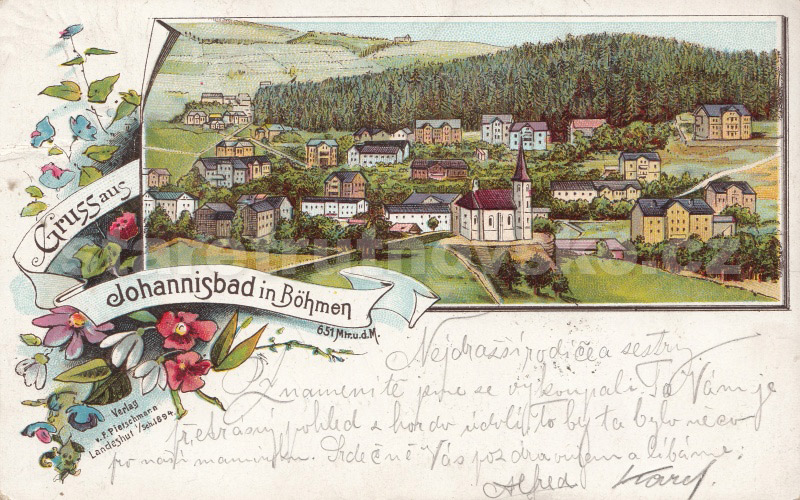 Gruss aus
Johannisbad in Böhmen
651 Mtr. u. d. M.
Verlag
v. F. Pietschmann
Landeshut i/Sch. 1894.
Nejdrazší rodiče a sestry.
Znamenitě jsme se vykoupali. Ta Vám je
přetrásný pohled s hor do údolí, to by ta bylo něco
pro naši maminku. Srdečně Vás pozdravujem a líbáme.
Alfred Karel
staretrutnovsko.cz